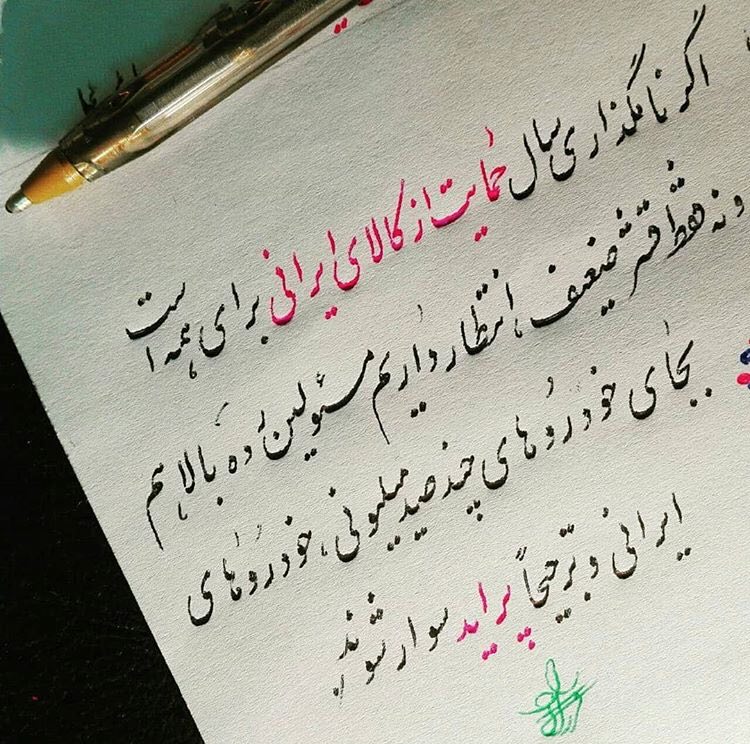 اگر نامگذاری سال حمایت از کالای ایرانی برای همه است
و نه فقط قشر ضعیف، انتظار داریم مسئولین رده بالا هم
بجای خودروهای چندصد میلیونی، خودروهای
ایرانی و ترجیحاً پراید سوار شوند.